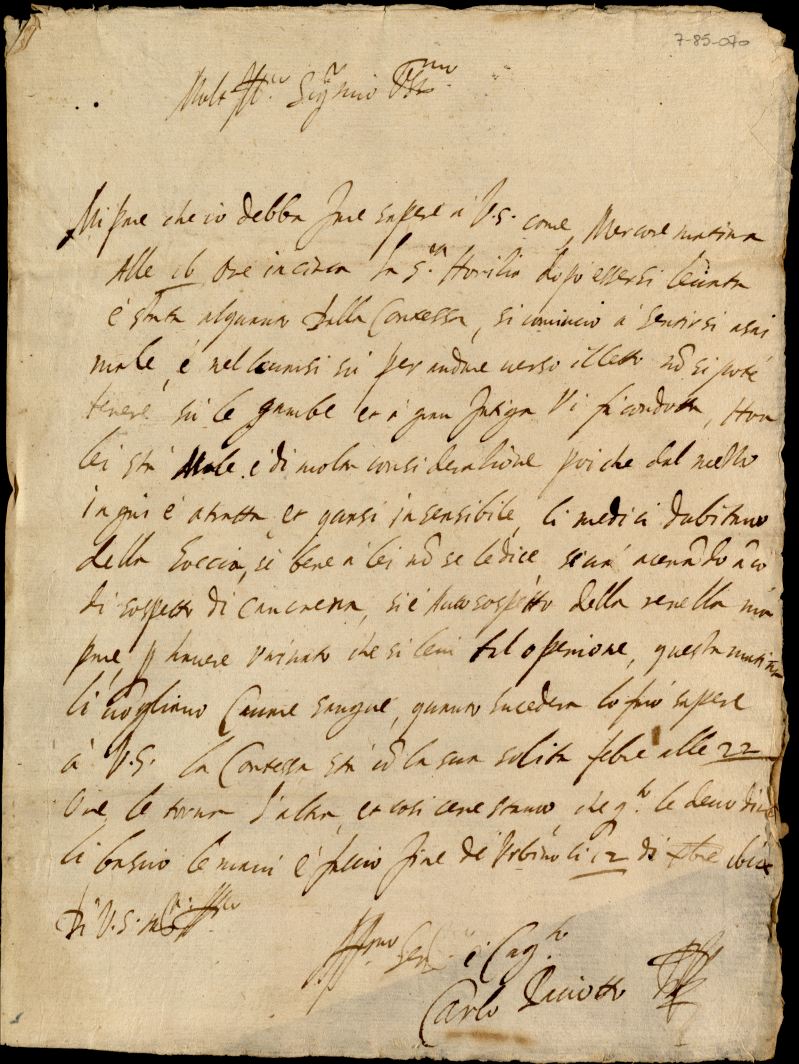 7-85-070
Molt Ill.re Sig.r mio
Mi pare che io debba fare sapere à V.S. come, Mercore matina
Alle 16 Ore in circa la S.ra Horilia dopo essersi levata
è stata alquanto dalla Contessa, si cominciò à sentirsi asai
male, é nel levarsi sù per andare verso il letto nõ si poté
tenere sù le gambe et à gran fatiga vi fù condotta, Hora
lei stà Male é di molta consideratione poiche dal mezzo
in giù é atratta et quasi insensibile, li medici dubitano
della Goccia, sé bene à lei nõ se le dice
di sospetto di cancrena, si é hauto sospetto della renella mà
pare, p havere urinato che si levi tal openione, questa matina
li vogliano Cavare sangue, quanto succederà lo farò sapere
à V.S. la Contessa stà cõ la sua solita febre alle 22
Ore le torna l'altra, et cosi cene stamo, che q.to le devo dire
li bascio le mani é faccio fine dé Urbino li 12 di
Di V.S. m.to Ill.re
Aff.mo Ser.re
Carlo Paciotto